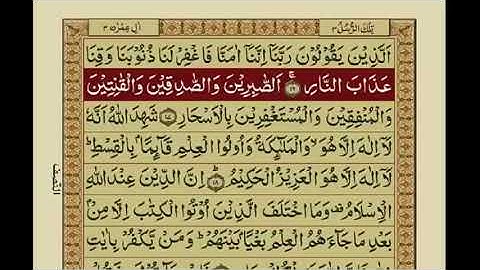 تِلْكَ الرُّسُلُ ٣ اٰلِ عِمْرٰنَ ٣
اَلَّذِيْنَ يَقُوْلُوْنَ رَبَّنَاۤ اِنَّنَاۤ اٰمَنَّا فَاغْفِرْ لَنَا ذُنُوْبَنَا وَقِنَا
عَذَابَ النَّارِ ۚ اَلصّٰبِرِيْنَ وَالصّٰدِقِيْنَ وَالْقٰنِتِيْنَ
وَالْمُنْفِقِيْنَ وَالْمُسْتَغْفِرِيْنَ بِالْاَسْحَارِ ﴿١٧﴾ شَهِدَ اللّٰهُ اَنَّهٗ
لَاۤ اِلٰهَ اِلَّا هُوَ ۙ وَالْمَلٰٓئِكَةُ وَاُولُوا الْعِلْمِ قَآئِمًۢا بِالْقِسْطِ ؕ
لَاۤ اِلٰهَ اِلَّا هُوَ الْعَزِيْزُ الْحَكِيْمُ ؕ ﴿١٨﴾ اِنَّ الدِّيْنَ عِنْدَ اللّٰهِ
الْاِسْلَامُ ۫ وَمَا اخْتَلَفَ الَّذِيْنَ اُوْتُوا الْكِتٰبَ اِلَّا مِنْۢ
بَعْدِ مَا جَآءَهُمُ الْعِلْمُ بَغْيًۢا بَيْنَهُمْ ؕ وَمَنْ يَّكْفُرْ بِاٰيٰتِ
النّصف